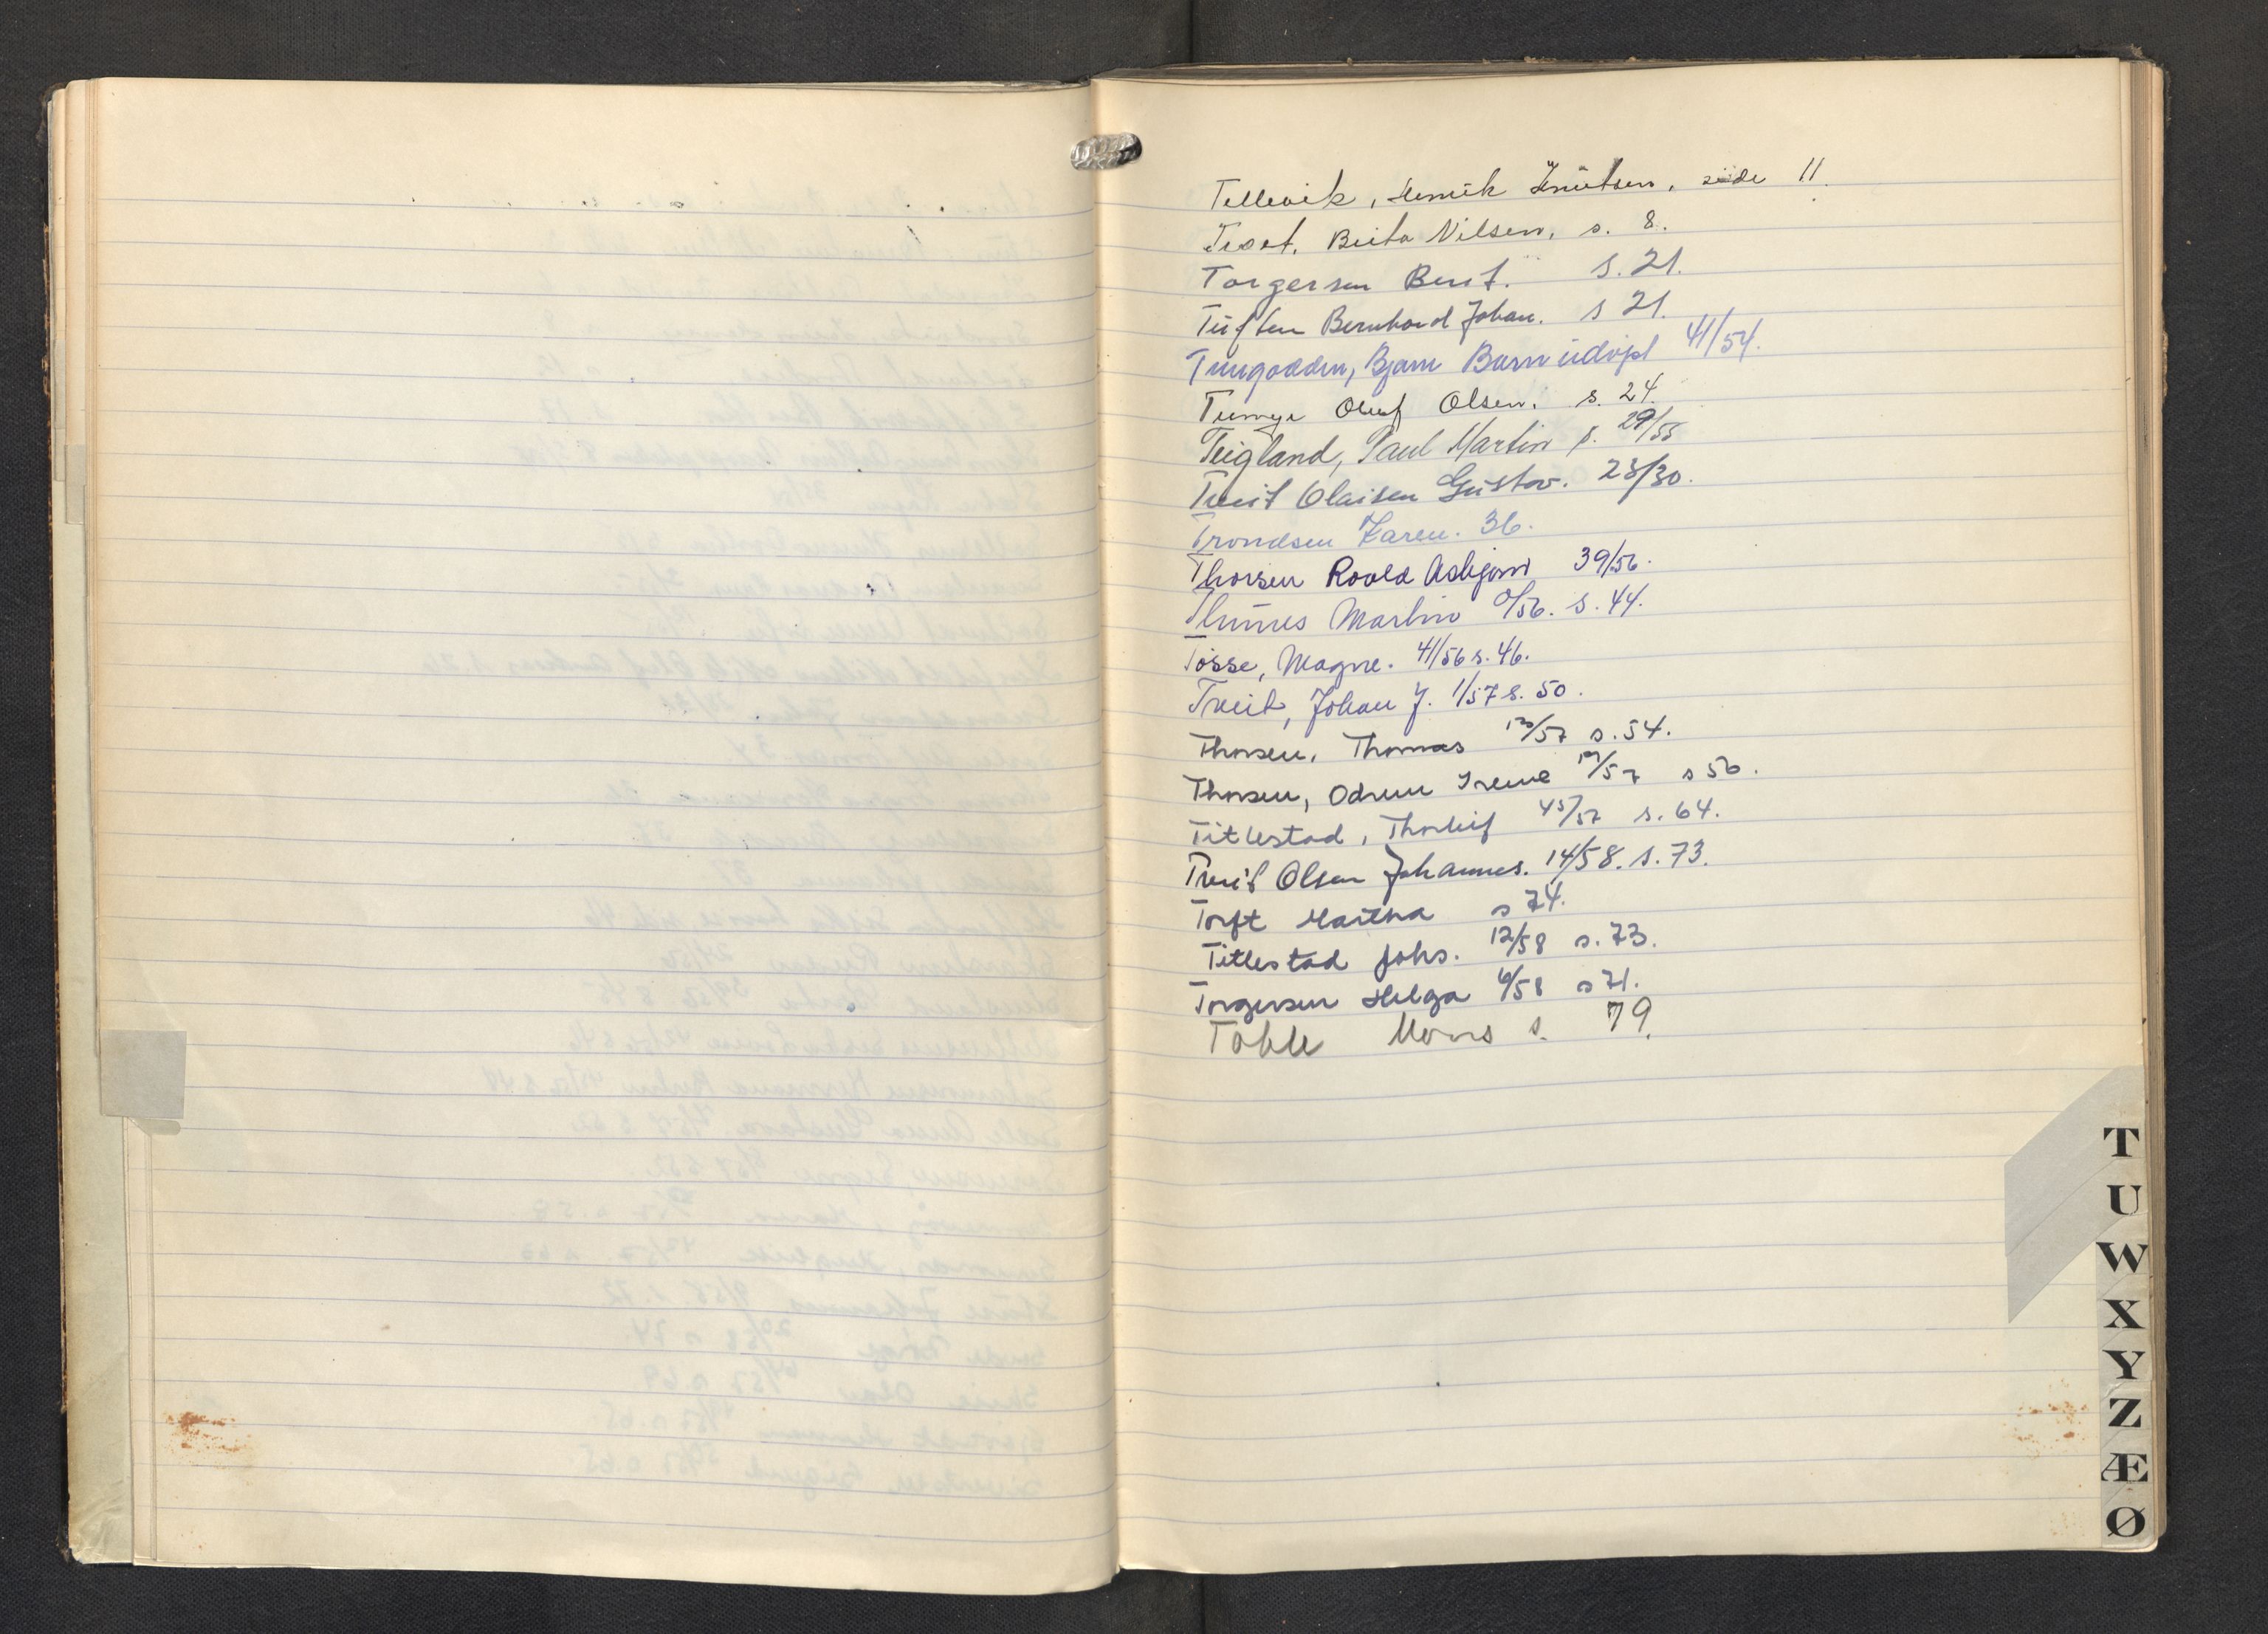 Tellevik, Henrik Knutsen, side 11.
Tvedt, Berta Nilsen, s. 8.
Torgersen Berit. s. 21.
Tuften Bernhard Johan. s 21.
Tungodden, Bjarn Barn 41/54.
Olsen. s. 24.
Teigland, Paul Martin s. 29/55
Tveit Olaisen Gustav. 23/30.
Trondsen Karen. 36.
Thorsen Roald Asbjørn 39/56.
Martin 9/56. s. 44.
Tosse, Magne. 41/56 s. 46.
Tveit, Johan J. 1/57 s. 50.
Thorsen, Thomas 13/57 s. 54.
Thorsen, Odrun Irene 19/57 s 56.
Titlestad, Thorleif 45/57 s. 64.
Tveit Olsen Johannes. 14/58. s. 73.
Toft Martha s 74.
Titlestad Johs. 12/58 s. 73.
Torgersen Helga 6/58 s 71.
Mons s. 79.
T
U
W
X
Y
Z
Æ
Ø